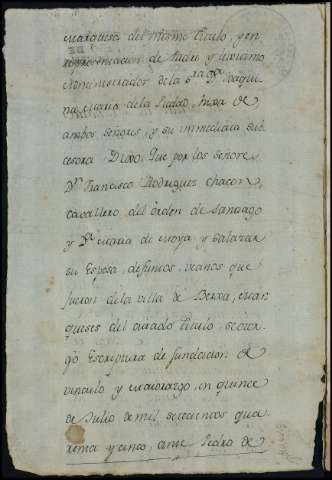 Marquesa del mismo titulo, y en
representacion de Padre y lexitimo
Administrador de la S.ra D.a Joaqui
na Maria de la Piedad, hixa de
ambos señores, y su immediata sub
cesora Dixo: Que por los señores
D.n Francisco Rodriguez Chacon,
cavallero del orden de Santiago
y D.a Maria de Moya y Salazar
su Esposa, difuntos, vecinos que
fueron de la villa de Berxa, Mar
queses del citado titulo, se otor
gó Escriptura de fundacion de
vinculo y Maiorazgo, en quince
de Julio de mil setecientos qua
renta y cinco, ante Pedro de